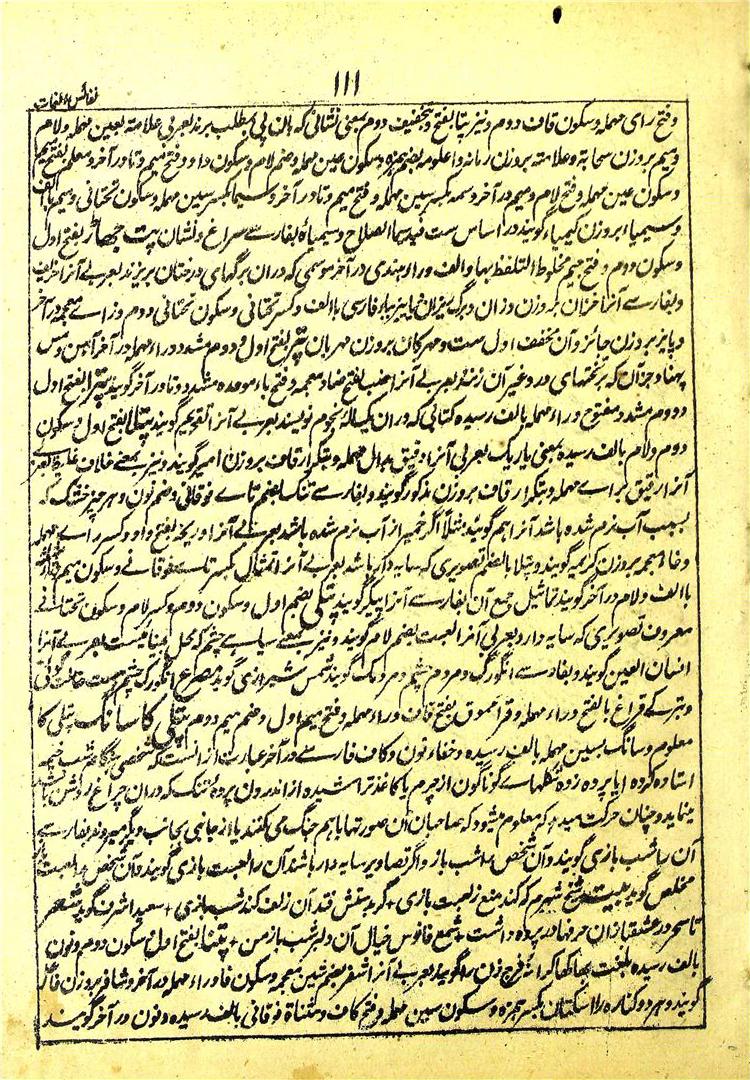 ۱۱۱
نفائس اللغات
وفتح رای مهمله وسکون قاف دوم ونیز پتا بفتح وتخفیف دوم بمعنی نشانی که بآن پی بمطلب برند بعربی علامة بعین مهمله ولام
ومیم بروزن سحابة وعلامته بروزن رمانه واعلومه بضم همزه وسکون عین مهمله وضم لام وسکون واو وفتح میم وتا در آخر ومعلم بفتح میم
وسکون عین مهمله وفتح لام ومیم در آخر وسمه بکسر سین مهمله وفتح میم وتا در آخر وسیما بکسر سین مهمله وسکون تحتانی ومیم با الف
وسیمیاء بروزن کیمیاء گویند در اساس ست فیه سیما الصلاح وسیمیاه بفارسے سراغ ونشان پت جھاڑ بفتح اول
وسکون دوم وفتح جیم مخلوط التلفظ بها والف وراء هندی در آخر موسمی که در ان برگهای درختان بریزند بعربی آنرا خریف
وبفارسے آنرا خزان بروزن وزان وبرگ ریزان وپاییز بباء فارسی با الف وکسر تحتانی وسکون تحتانی دوم وزاے معجمه در آخر
وپایز بروزن جائز وآن مخفف اول ست ومهرکان بروزن مهربان پتر بفتح اول ودوم مشدد وراء مهمله در آخر آهن ومس
پهنا وجز آن که بر تختهای در وغیر آن زنند بعربے آنرا ضبه بفتح ضاد معجمه وفتح باء موحده مشدد وتا در آخر گویند پترا بفتح اول
ودوم مشدد مفتوح وراء مهمله بالف رسیده کتابی که در ان یکساله نجوم نویسند بعربے آنرا تقویم گویند پتلا بفتح اول وسکون
دوم ولام بالف رسیده بمعنی باریک بعربی آنرا دقیق بدال مهمله وبتکرار قاف بروزن امیر گویند ونیز بمعنے خلاف غلیظ بعربے
آنرا رقیق براے مهمله وبتکرار قاف بروزن مذکور گویند وبفارسے تنک بضم تاے فوقانی وضم نون وهر چیز خشک که
بسبب آب نرم شده باشد آنرا هم گویند مثلا اگر خمیر از آب نرم شده باشد بعربے آنرا وریخه بفتح واو وکسر راے مهمله
وخاء معجمه بروزن کریمه گویند وپتلا بالضم تصویری که سایه دار باشد بعربے آنرا تمثال بکسر تاے فوقانے وسکون میم
با الف ولام در آخر گویند تماثیل جمع آن بفارسے آنرا پیکر گویند پتلی بضم اول وسکون دوم وکسر لام وسکون تحتانے
معروف تصویری که سایه دار وبعربی آنرا لعبت بضم لام گویند ونیز بمعنے سیاهے چشم که محل بینائیست بعربے آنرا
انسان العین گویند وبفارسے انگورک ومردم چشم ومردمک گویند شمس شیرازی گوید مصراع انگورک چشم
وبترکے قراغ بالفتح وراء مهمله وقراجموق بفتح قاف وراء مهمله وفتح جیم اول وضم میم دوم پتلی کا سانگ پتلی کا
معلوم وسانگ بسین مهمله بالف رسیده وخفاء نون وکاف فارسے در آخر عبارت از آنست که شخصی هنگام شب خیمه
استاده کرده یا پرده زده شکلهاے گوناگون از چرم یا کاغذ تراشیده از اندرون پرده تنک که دران چراغ روشن باشد
مینماید وچنان حرکت میدهد که معلوم میشود که صاحبان آن صورتها باهم جنگ می کنند یا از جانبی بجانب دیگر میروند بفارسے
آن را شب بازی گویند وآن شخص را شب باز واگر تصاویر سایه دار باشند آن را لعبت بازی گویند وآن شخص را لعبت باز
مخلص گوید بیت شیخ شهرم که کند منع ز لعبت بازی + گر بدستش فتد آن زلف کند شب بازی + سعید اشرف گوید شعر
تا سحر در عشقبازان حرفها در پرده داشت + شمع فانوس خیال آن دلبر شب باز من + پتنا بفتح اول وسکون دوم ونون
بالف رسیده بلغت بهاکها کرانه فرج زن را گویند بعربے آنرا شفر بضم شین معجمه وسکون فا وراء مهمله در آخر وشافر بروزن فاعل
گویند وهر دو کناره را اسکتان بکسر همزه وسکون سین مهمله وفتح کاف ومثناة فوقانی بالف رسیده ونون در آخر گویند